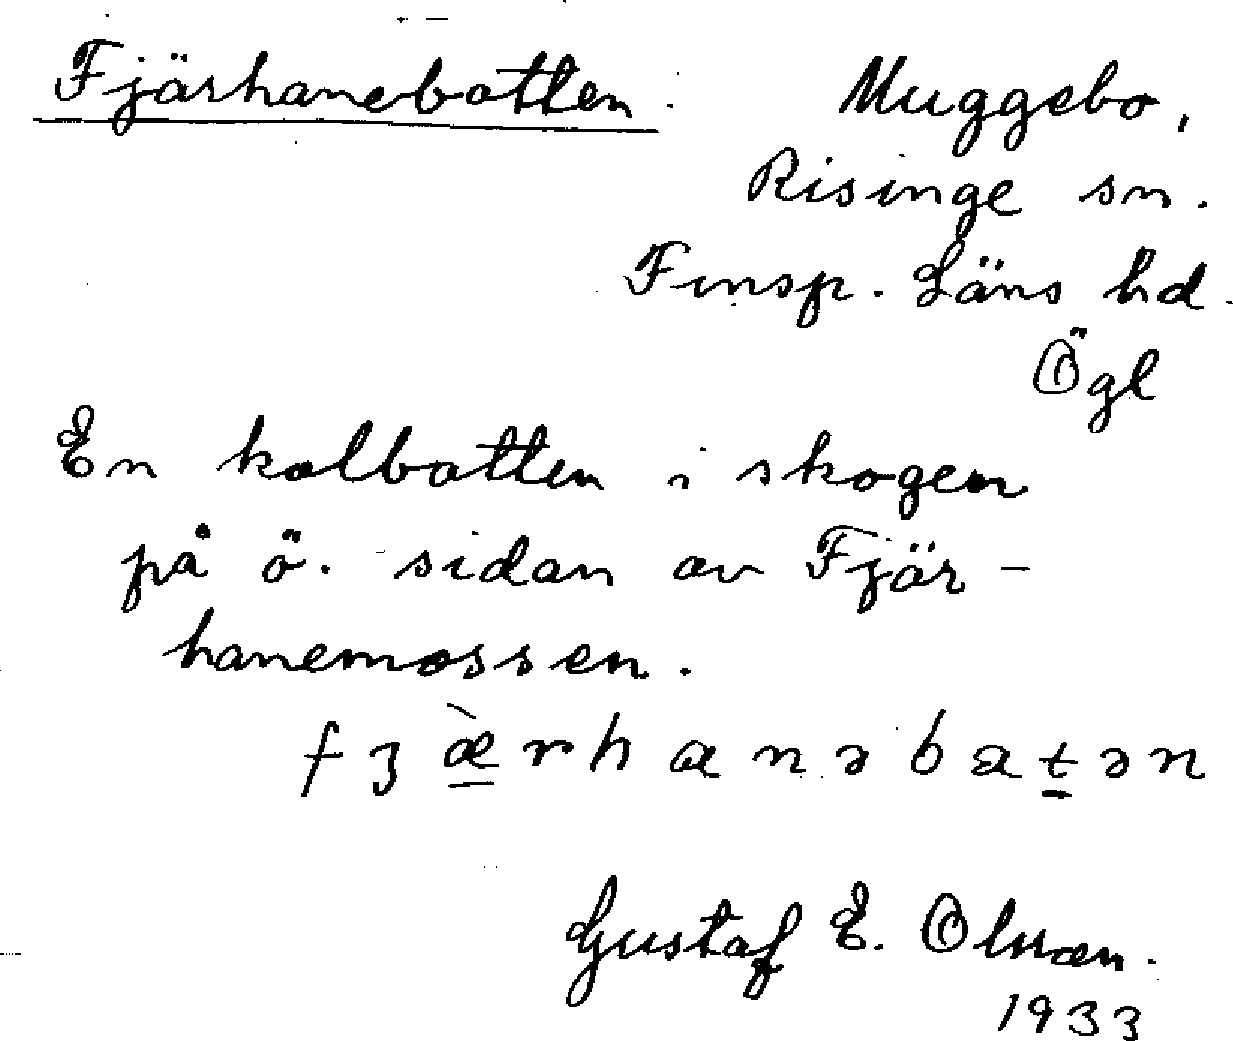 Fjärhanebotten. Muggebo,
Risinge sn.
Finsp. Läns hd.
Ögl
En kolbotten i skogen
på ö. sidan av Fjär-
hanemossen.
fʒæ̀rhanəbatən
Gustaf E. Olsson.
1933